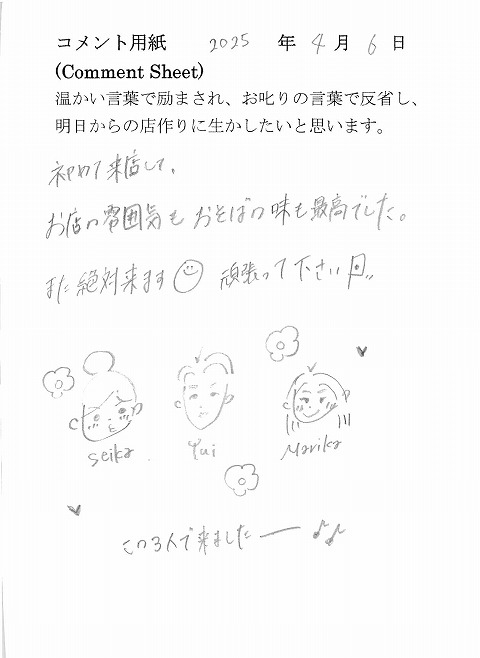 コメント用紙 2025 年 4 月 6 日
(Comment Sheet)
温かい言葉で励まされ、お叱りの言葉で反省し、
明日からの店作りに生かしたいと思います。
初めて来店して、
お店の雰囲気も おそばの味も最高でした。
また絶対来ます 頑張って下さい
seika
Yui
Marika
この3人で来ましたー ♪♪